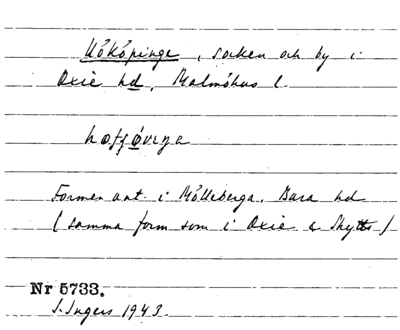 Hököpinge, socken och by i
Oxie hd, Malmöhus l.
Formen ant. i Mölleberga, Bara hd
(samma form som i Oxie & Skytts)
Nr 5733.
I. Ingers 1943.